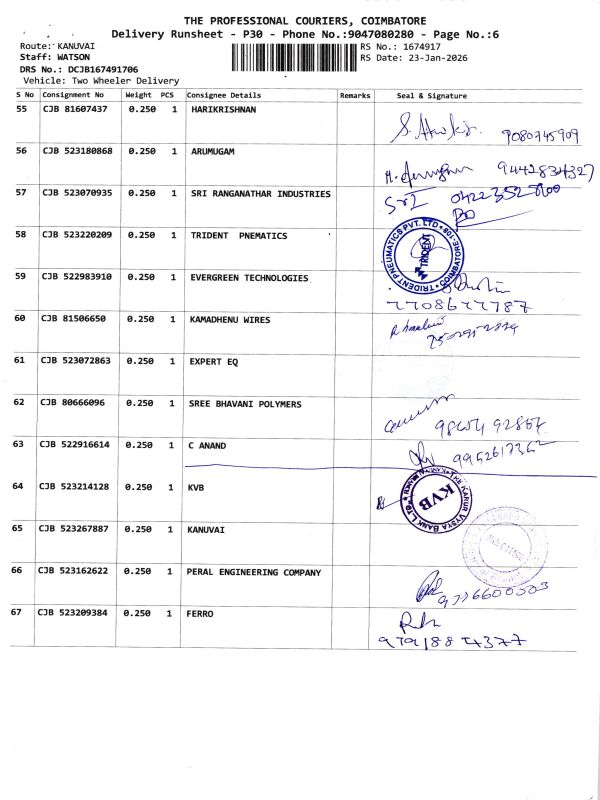 THE PROFESSIONAL COURIERS, COIMBATORE
Delivery Runsheet - P30 - Phone No.:9047080280 - Page No.:6
Route: KANUVAI
RS No.: 1674917
Staff: WATSON
RS Date: 23-Jan-2026
DRS No.: DCJB167491706
Vehicle: Two Wheeler Delivery
S No Consignment No Weight PCS Consignee Details Remarks Seal & Signature
55 CJB 81607437 0.250 1 HARIKRISHNAN
9080745909
56 CJB 523180868 0.250 1 ARUMUGAM
9442834327
57 CJB 523070935 0.250 1 SRI RANGANATHAR INDUSTRIES
SRI
58 CJB 523220209 0.250 1 TRIDENT PNEMATICS
TRIDENT PNEUMATICS PVT. LTD
COIMBATORE-109
TRIDENT
59 CJB 522983910 0.250 1 EVERGREEN TECHNOLOGIES
7708677787
60 CJB 81506650 0.250 1 KAMADHENU WIRES
61 CJB 523072863 0.250 1 EXPERT EQ
62 CJB 80666096 0.250 1 SREE BHAVANI POLYMERS
63 CJB 522916614 0.250 1 C ANAND
64 CJB 523214128 0.250 1 KVB
THE KARUR VYSYA BANK LTD.
KVB
65 CJB 523267887 0.250 1 KANUVAI
66 CJB 523162622 0.250 1 PERAL ENGINEERING COMPANY
67 CJB 523209384 0.250 1 FERRO